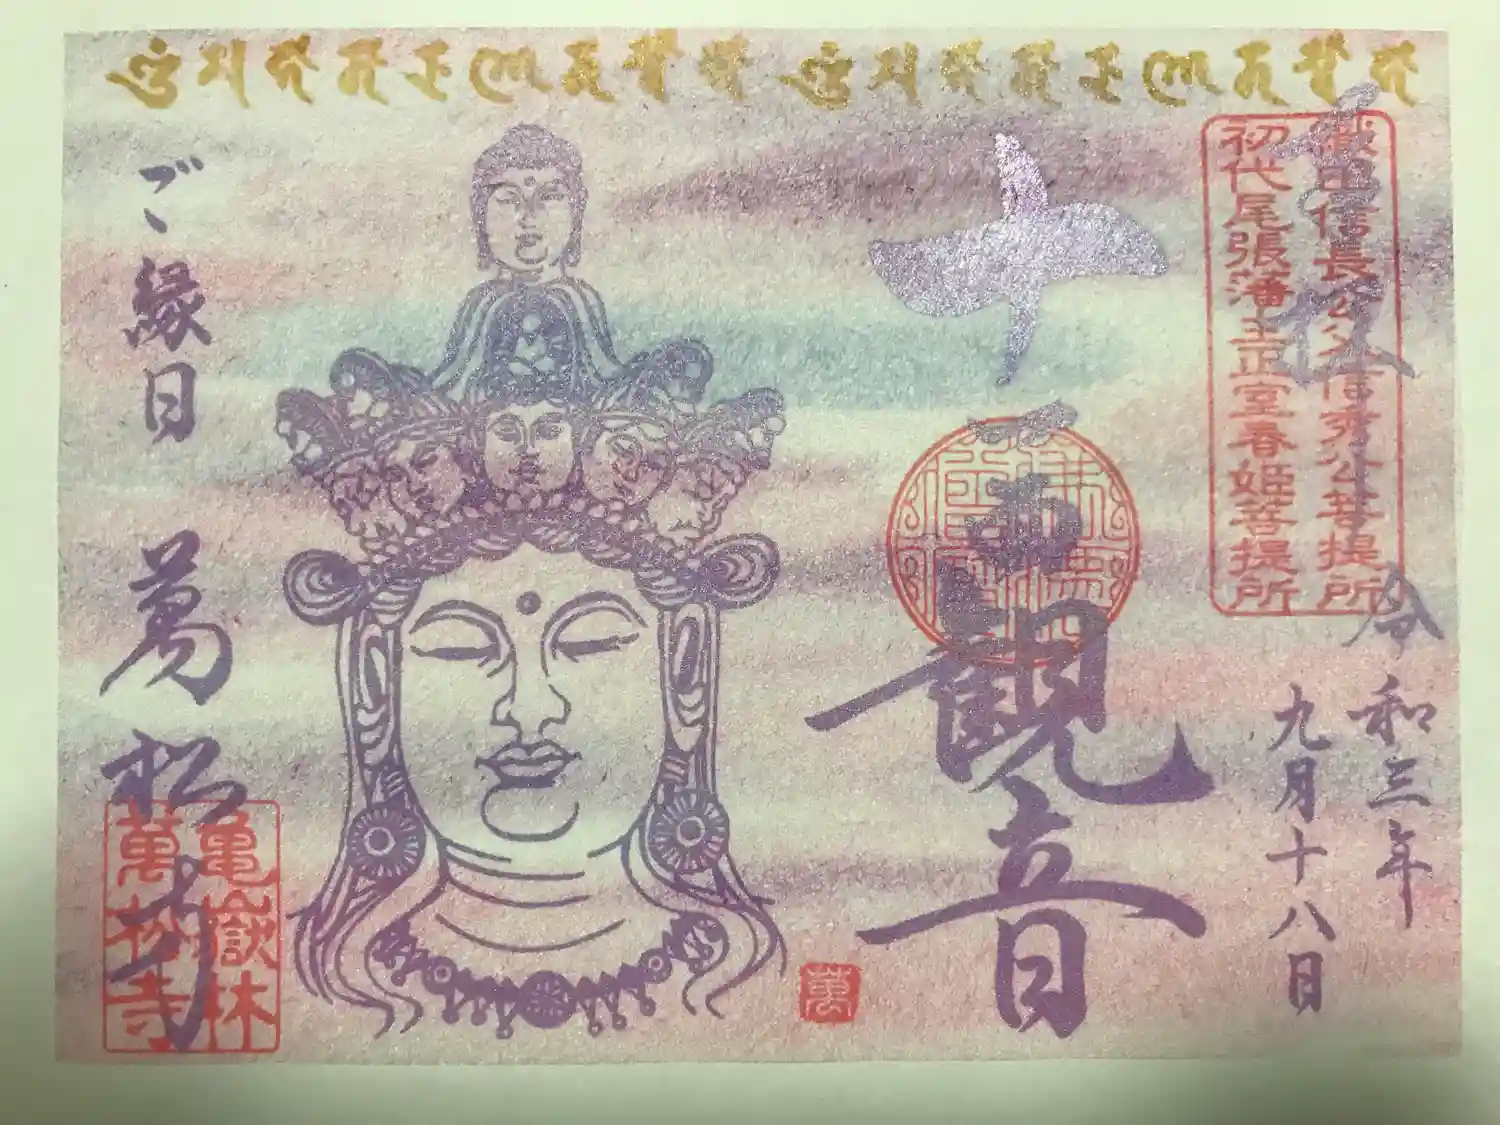 奉拝
織田信長公父信秀公菩提所
初代尾張藩主正室春姫菩提所
令和三年
九月十八日
十一面観音
萬
ご縁日
萬松寺
亀嶽林
萬松寺